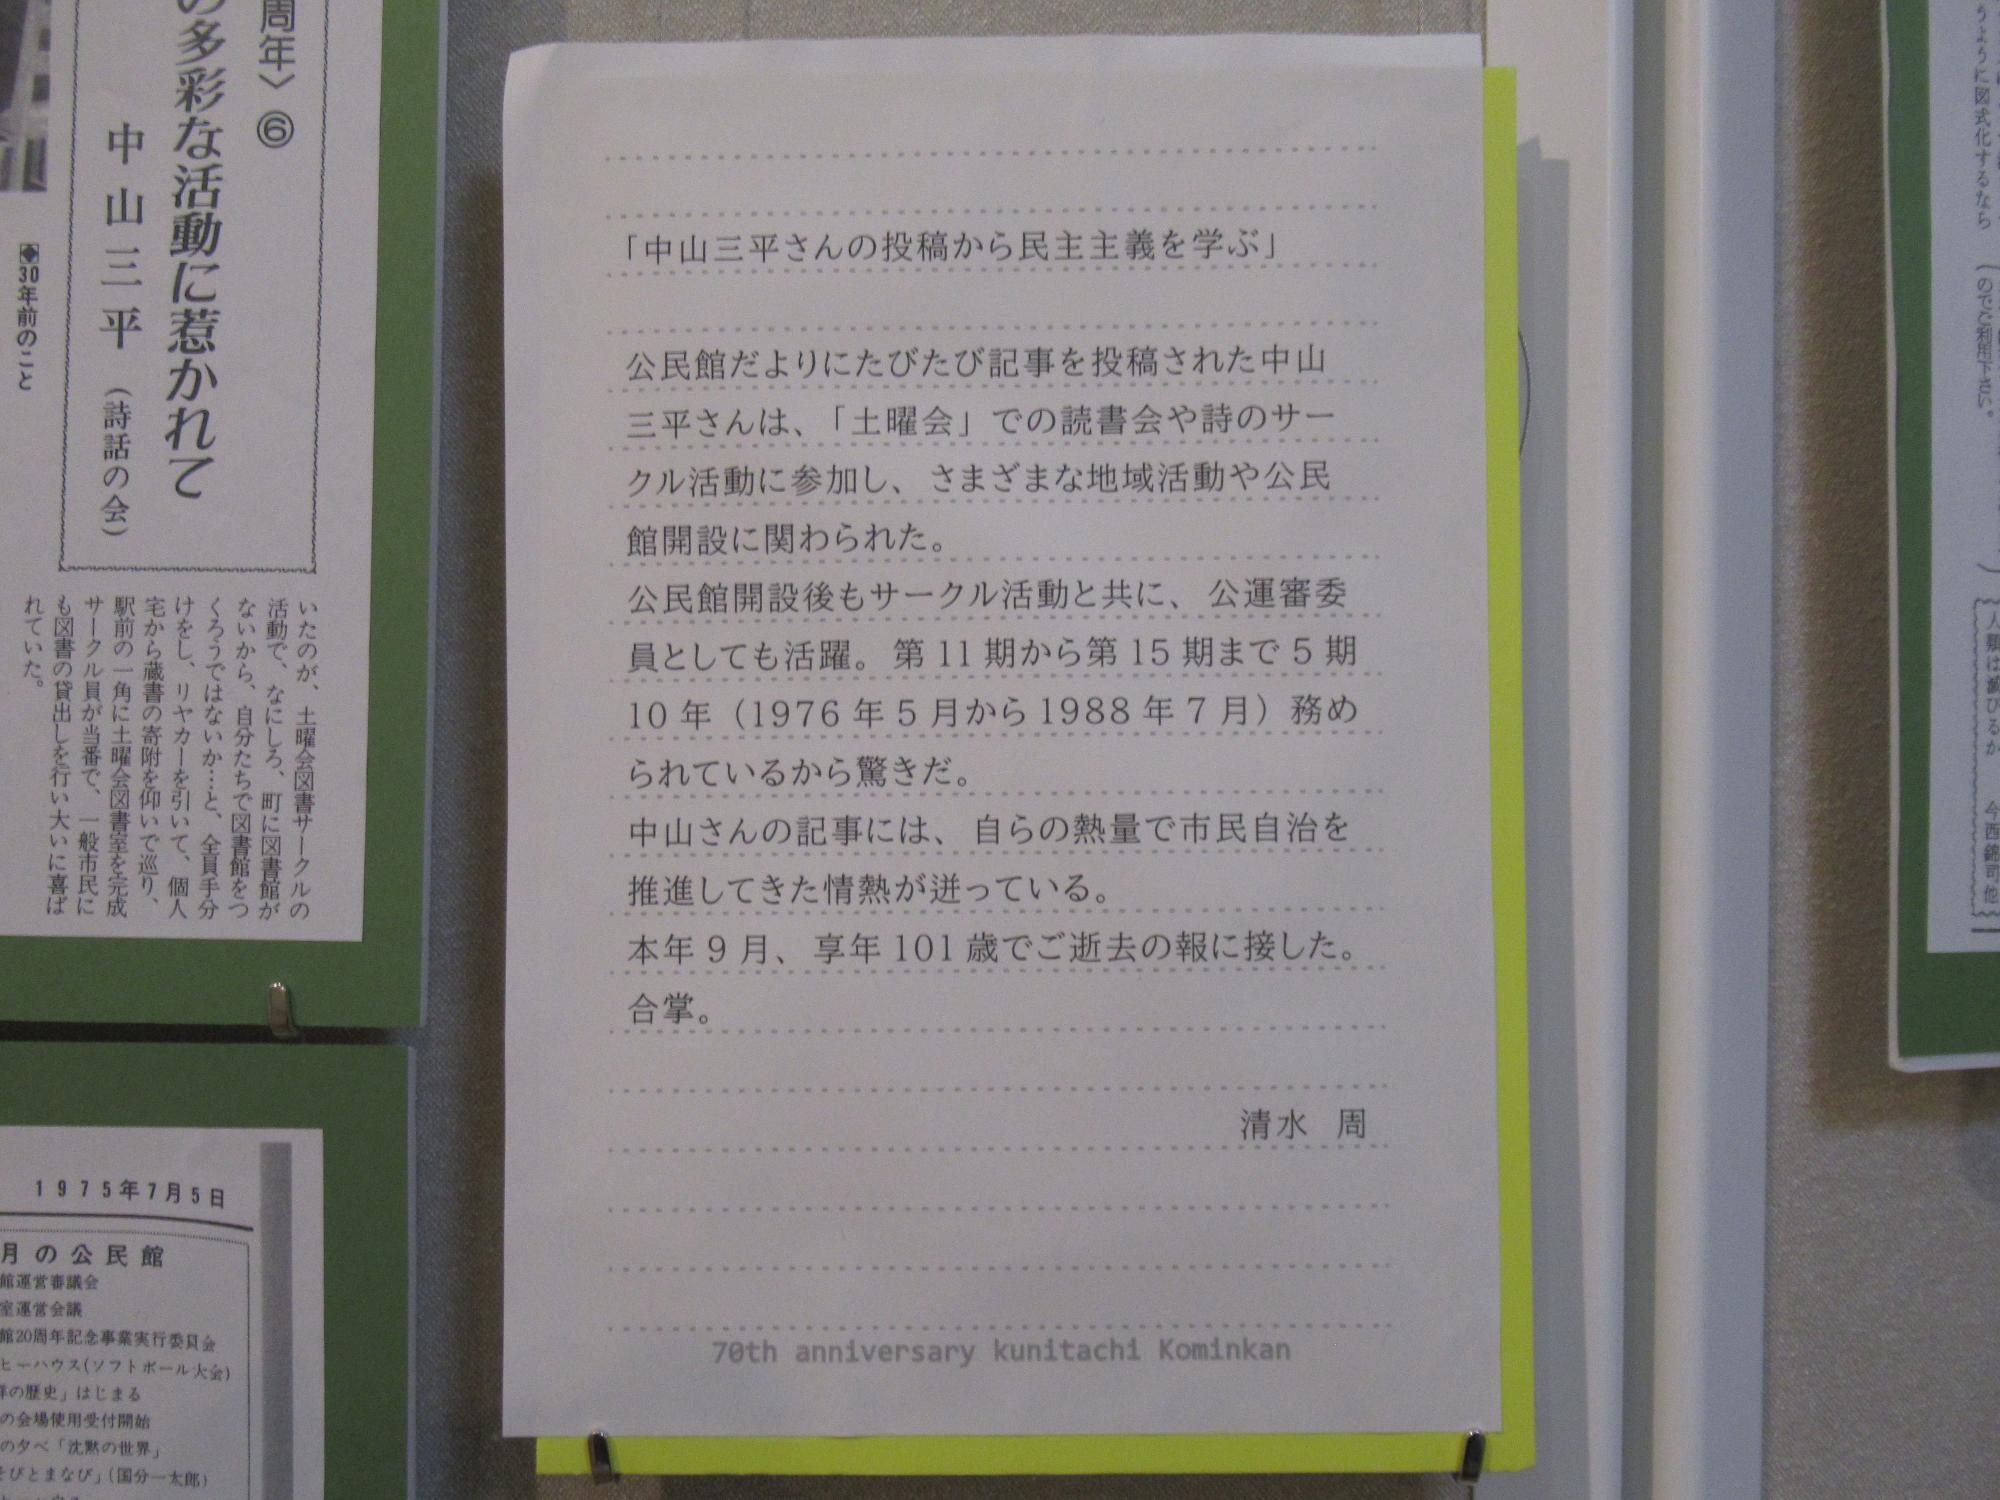 周年〉⑥
の多彩な活動に惹かれて
中山三平（詩話の会）
◆30年前のこと
いたのが、土曜会図書サークルの
活動で、なにしろ、町に図書館が
ないから、自分たちで図書館をつ
くろうではないか…と、全員手分
けをし、リヤカーを引いて、個人
宅から蔵書の寄附を仰いで巡り、
駅前の一角に土曜会図書室を完成
サークル員が当番で、一般市民に
も図書の貸出しを行い大いに喜ば
れていた。
1975年7月5日
月の公民館
館運営審議会
室運営会議
館20周年記念事業実行委員会
ヒーハウス(ソフトボール大会)
の歴史」はじまる
の会場使用受付開始
の夕べ「沈黙の世界」
そびとまなび」(国分一太郎)
「中山三平さんの投稿から民主主義を学ぶ」
公民館だよりにたびたび記事を投稿された中山
三平さんは、「土曜会」での読書会や詩のサー
クル活動に参加し、さまざまな地域活動や公民
館開設に関わられた。
公民館開設後もサークル活動と共に、公運審委
員としても活躍。第 11 期から第 15 期まで 5 期
10 年（1976 年 5 月から 1988 年 7 月）務め
られているから驚きだ。
中山さんの記事には、自らの熱量で市民自治を
推進してきた情熱が迸っている。
本年 9 月、享年 101 歳でご逝去の報に接した。
合掌。
清水 周
70th anniversary kunitachi Kominkan
うように図式化するなら
(のでご利用下さい。
人類は滅びるか 今西錦司他